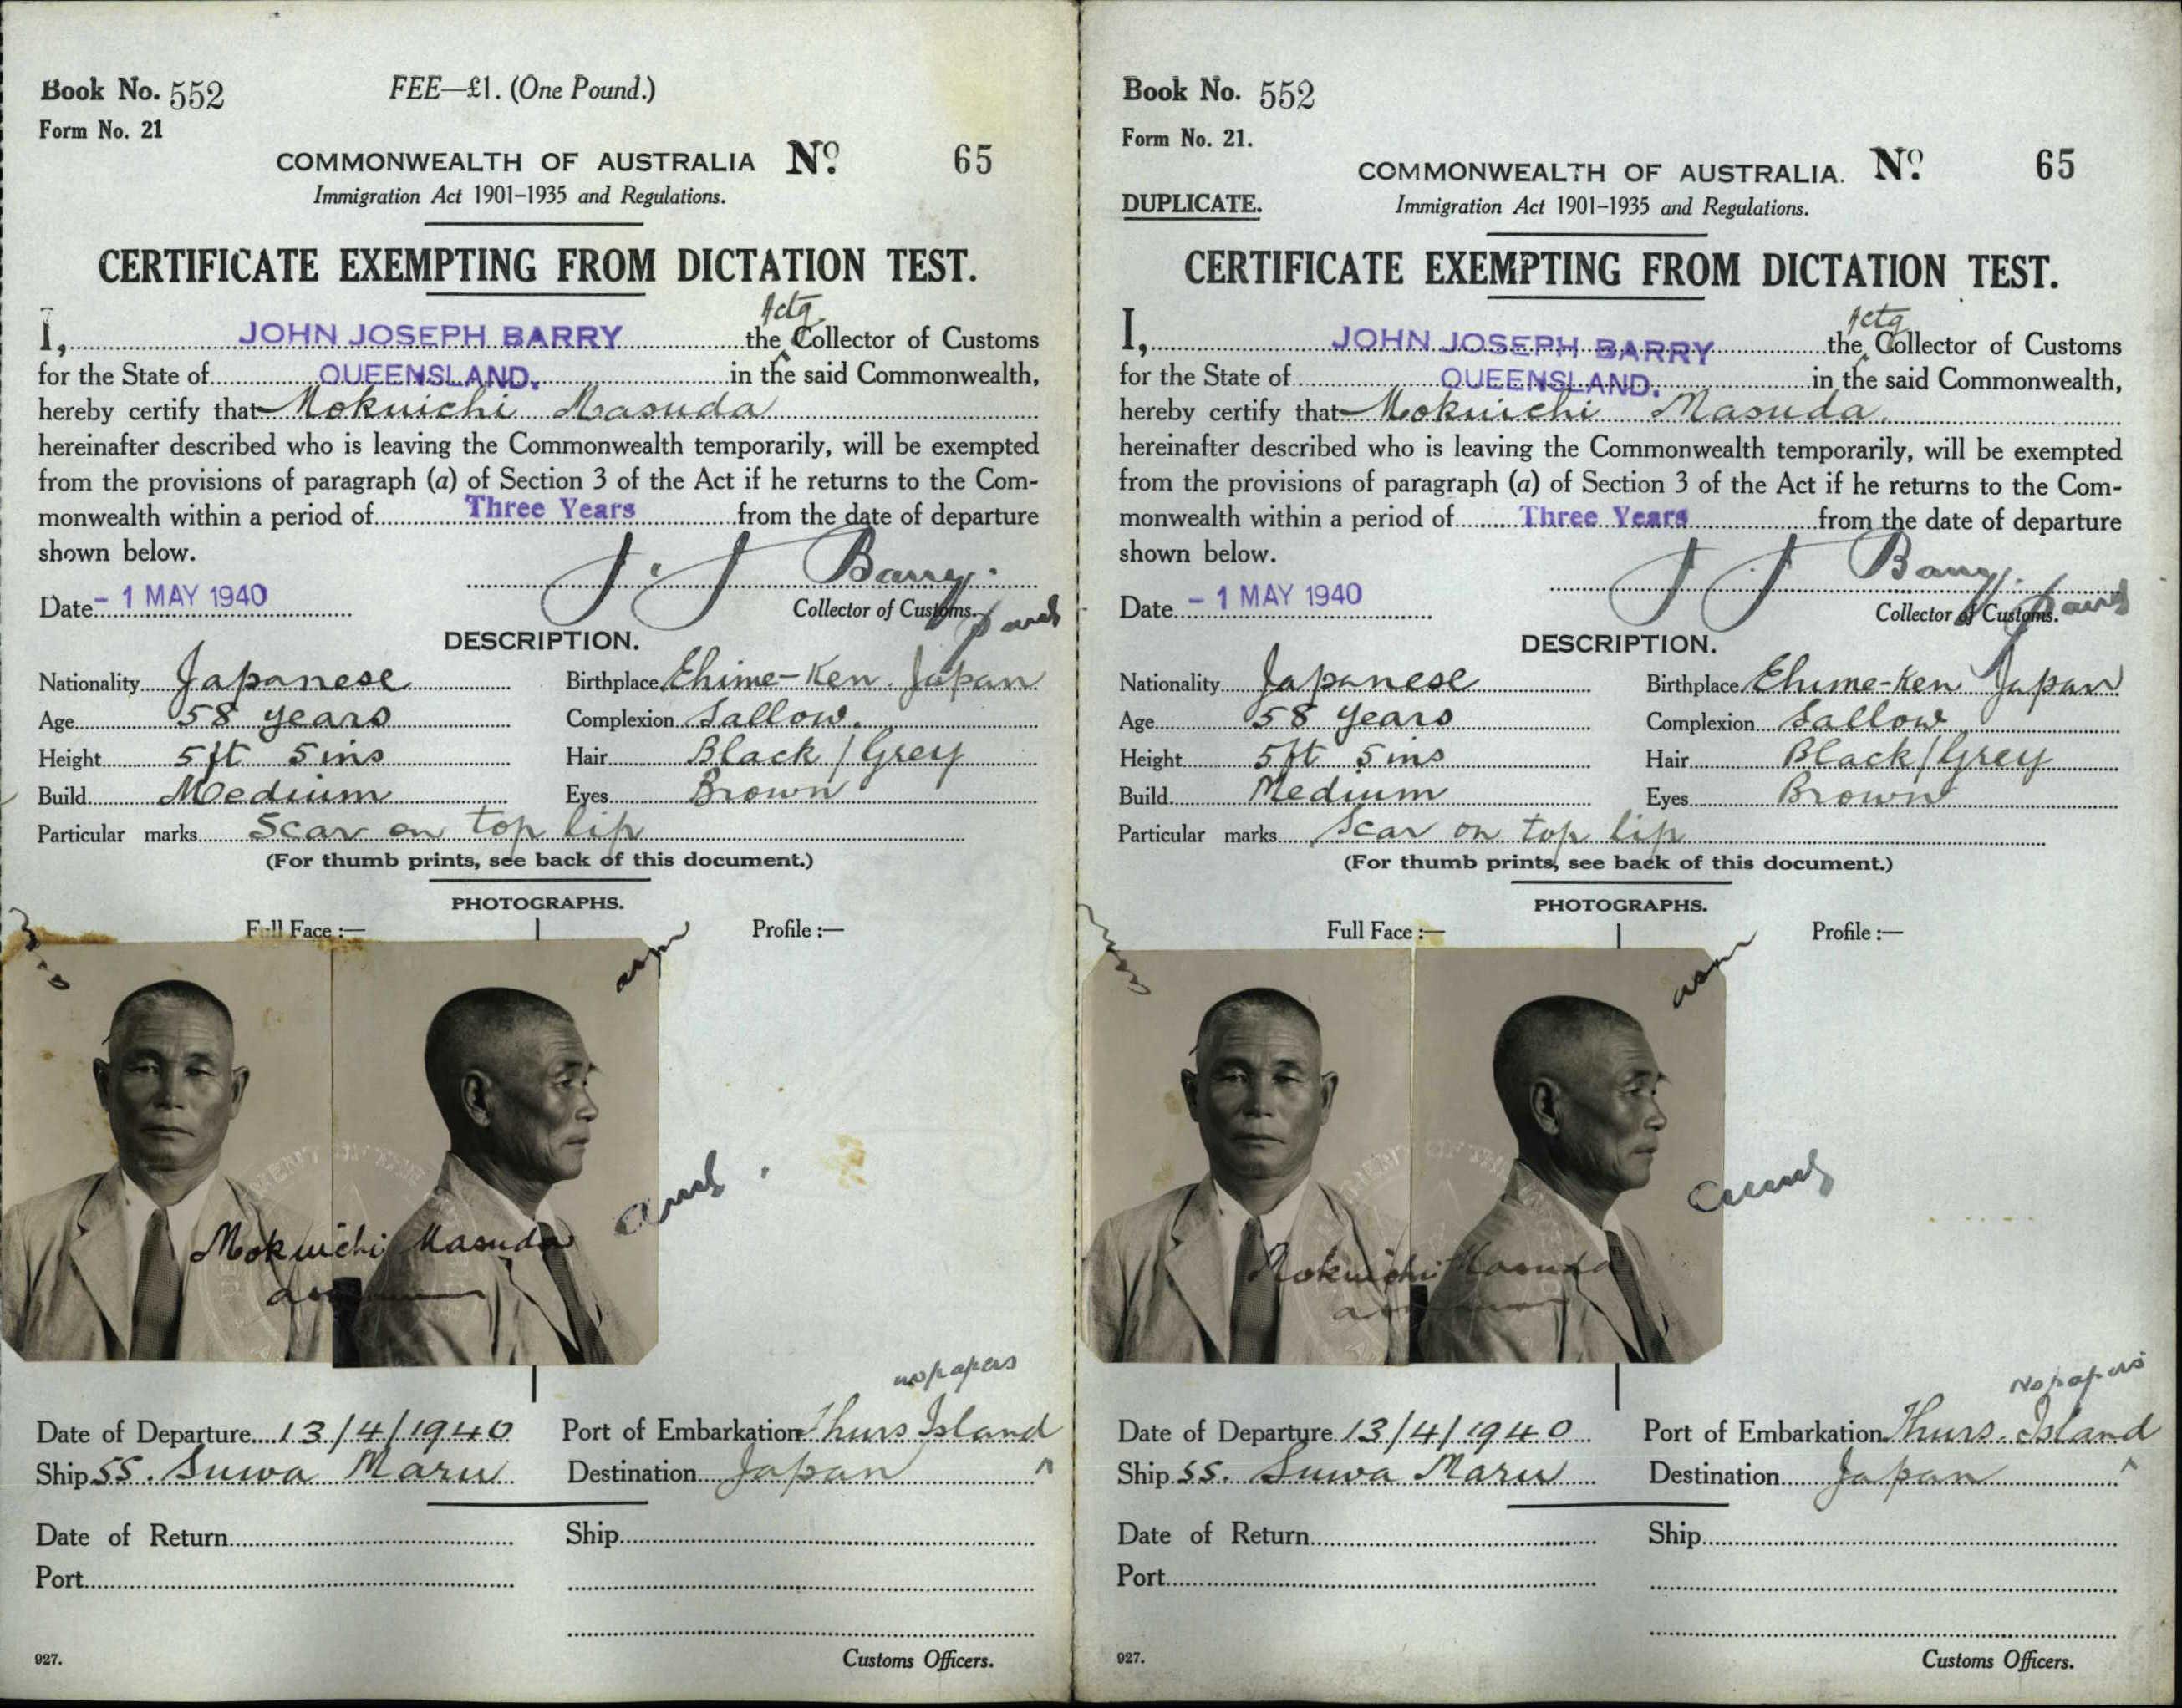 Book No. 552
FEE—£1. (One Pound.)
Form No. 21
COMMONWEALTH OF AUSTRALIA No. 65
Immigration Act 1901–1935 and Regulations.
CERTIFICATE EXEMPTING FROM DICTATION TEST.
Actg
I, JOHN JOSEPH BARRY the Collector of Customs
for the State of QUEENSLAND. in the said Commonwealth,
hereby certify that Mokuichi Masuda
hereinafter described who is leaving the Commonwealth temporarily, will be exempted
from the provisions of paragraph (a) of Section 3 of the Act if he returns to the Com-
monwealth within a period of Three Years from the date of departure
shown below.
J. J Barry.
Date - 1 MAY 1940
Collector of Customs.
DESCRIPTION.
Nationality Japanese Birthplace Ehime-Ken Japan
Age 58 years Complexion Sallow.
Height 5ft 5ins Hair Black/Grey
Build Medium Eyes Brown
Particular marks Scar on top lip
(For thumb prints, see back of this document.)
PHOTOGRAPHS.
Full Face :— Profile :—
Mokuichi Masuda
no papers
Date of Departure 13/4/1940 Port of Embarkation Thurs Island
Ship SS. Suwa Maru Destination Japan
Date of Return Ship
Port
927. Customs Officers.
Book No. 552
Form No. 21.
COMMONWEALTH OF AUSTRALIA. No. 65
DUPLICATE. Immigration Act 1901–1935 and Regulations.
CERTIFICATE EXEMPTING FROM DICTATION TEST.
Actg
I, JOHN JOSEPH BARRY the Collector of Customs
for the State of QUEENSLAND. in the said Commonwealth,
hereby certify that Mokuichi Masuda
hereinafter described who is leaving the Commonwealth temporarily, will be exempted
from the provisions of paragraph (a) of Section 3 of the Act if he returns to the Com-
monwealth within a period of Three Years from the date of departure
shown below.
J J Barry.
Date - 1 MAY 1940
Collector of Customs.
DESCRIPTION.
Nationality Japanese Birthplace Ehime-Ken Japan
Age 58 years Complexion Sallow
Height 5ft 5ins Hair Black/Grey
Build Medium Eyes Brown
Particular marks Scar on top lip
(For thumb prints, see back of this document.)
PHOTOGRAPHS.
Full Face :— Profile :—
Mokuichi Masuda
No papers
Date of Departure 13/4/1940 Port of Embarkation Thurs. Island
Ship SS. Suwa Maru Destination Japan
Date of Return Ship
Port
927. Customs Officers.